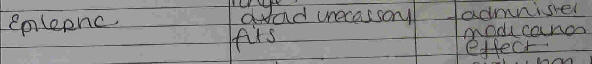 Epileptic avoid unecassary -administer
fits medication
effect